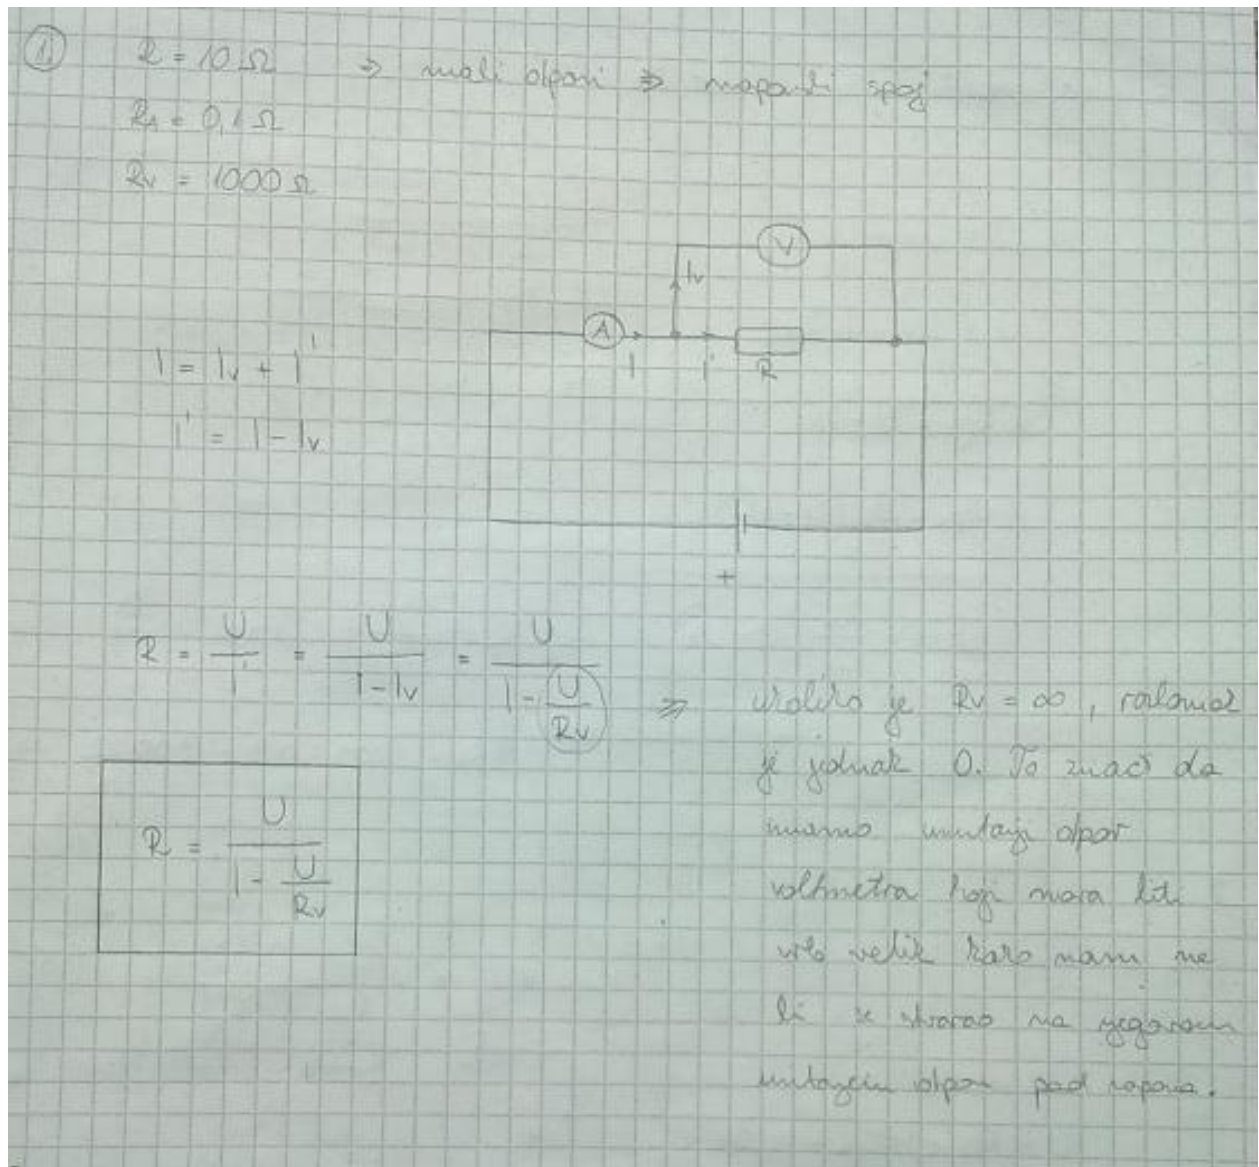 1.
R = 10 Ω ⇒ mali otpori ⇒ naponski spoj
RA = 0,1 Ω
RV = 1000 Ω
V
IV
A
I I' R
I = IV + I'
I' = I - IV
+
R = U/I' = U/(I - IV) = U/(I - U/RV) ⇒ ukoliko je RV = ∞, razlomak
je jednak 0. To znači da
imamo unutanji otpor
R = U/(I - U/RV)
voltmetra koji mora biti
vrlo velik kako nam ne
bi se stvarao na njegovom
otpor pad napona.